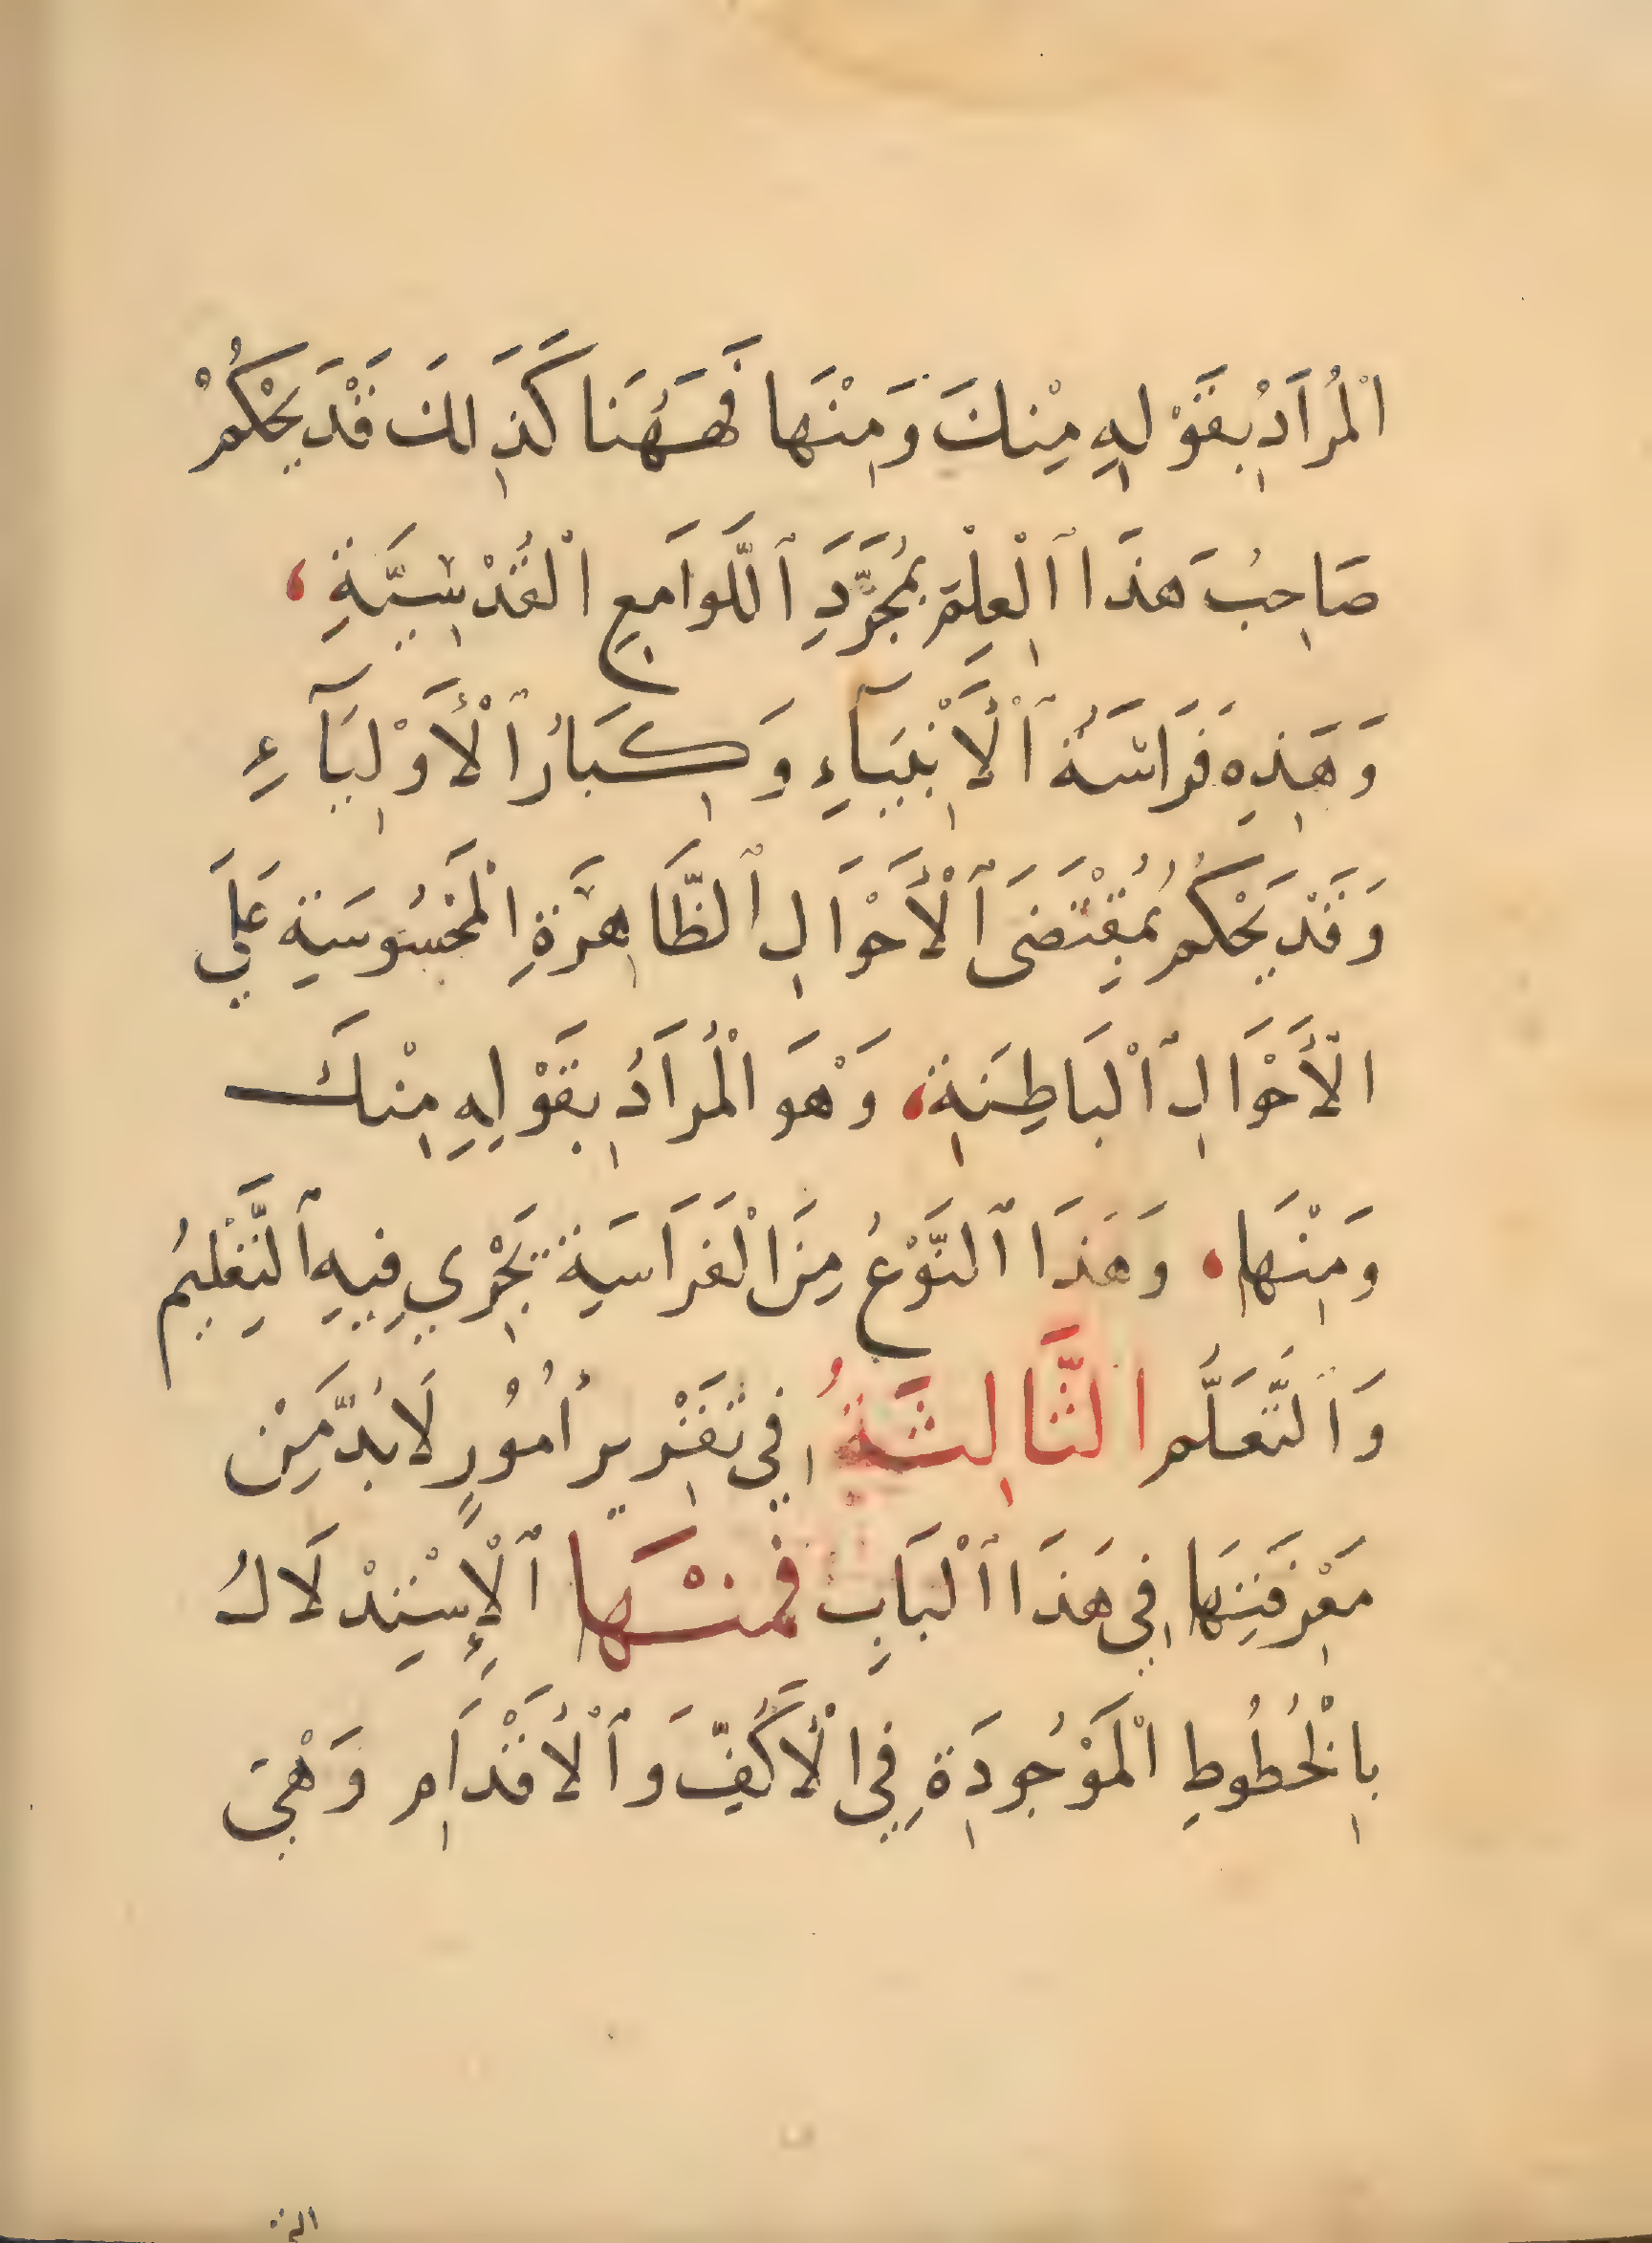 الْمُرَادُ بِقَوْلِهِ مِنْكَ وَمِنْهَا فَهَهُنَا كَذَلِكَ قَدْ يَحْكُمُ
صَاحِبُ هَذَا الْعِلْمِ بِمُجَرَّدِ اللَّوَامِعِ الْقُدْسِيَّةِ،
وَهَذِهِ فَرَاسَةُ الْأَنْبِيَآءِ وَكِبَارُ الْأَوْلِيَآءِ
وَقَدْ يَحْكُمُ بِمُقْتَضَى الْأَحْوَالِ الظَّاهِرَةِ الْمَحْسُوسَةِ عَلَي
الْأَحْوَالِ الْبَاطِنَةِ، وَهْوَ الْمُرَادُ بِقَوْلِهِ مِنْكَ
وَمِنْهَا، وَهَذَا النَّوْعُ مِنَ الْفَرَاسَةِ يَجْرِي فِيهِ التَّعْلِيمُ
وَالتَّعَلُّم الثَّالِثَةُ فِي تَقْرِيرِ أُمُورٍ لَا بُدَّ مِنْ
مَعْرِفَتِهَا فِي هَذَا الْبَابِ فَمِنْهَا الْإِسْتِدْلَالُ
بِالْخُطُوطِ الْمَوْجُودَةِ فِي الْأَكُفِّ وَالْأَقْدَامِ وَهْيَ